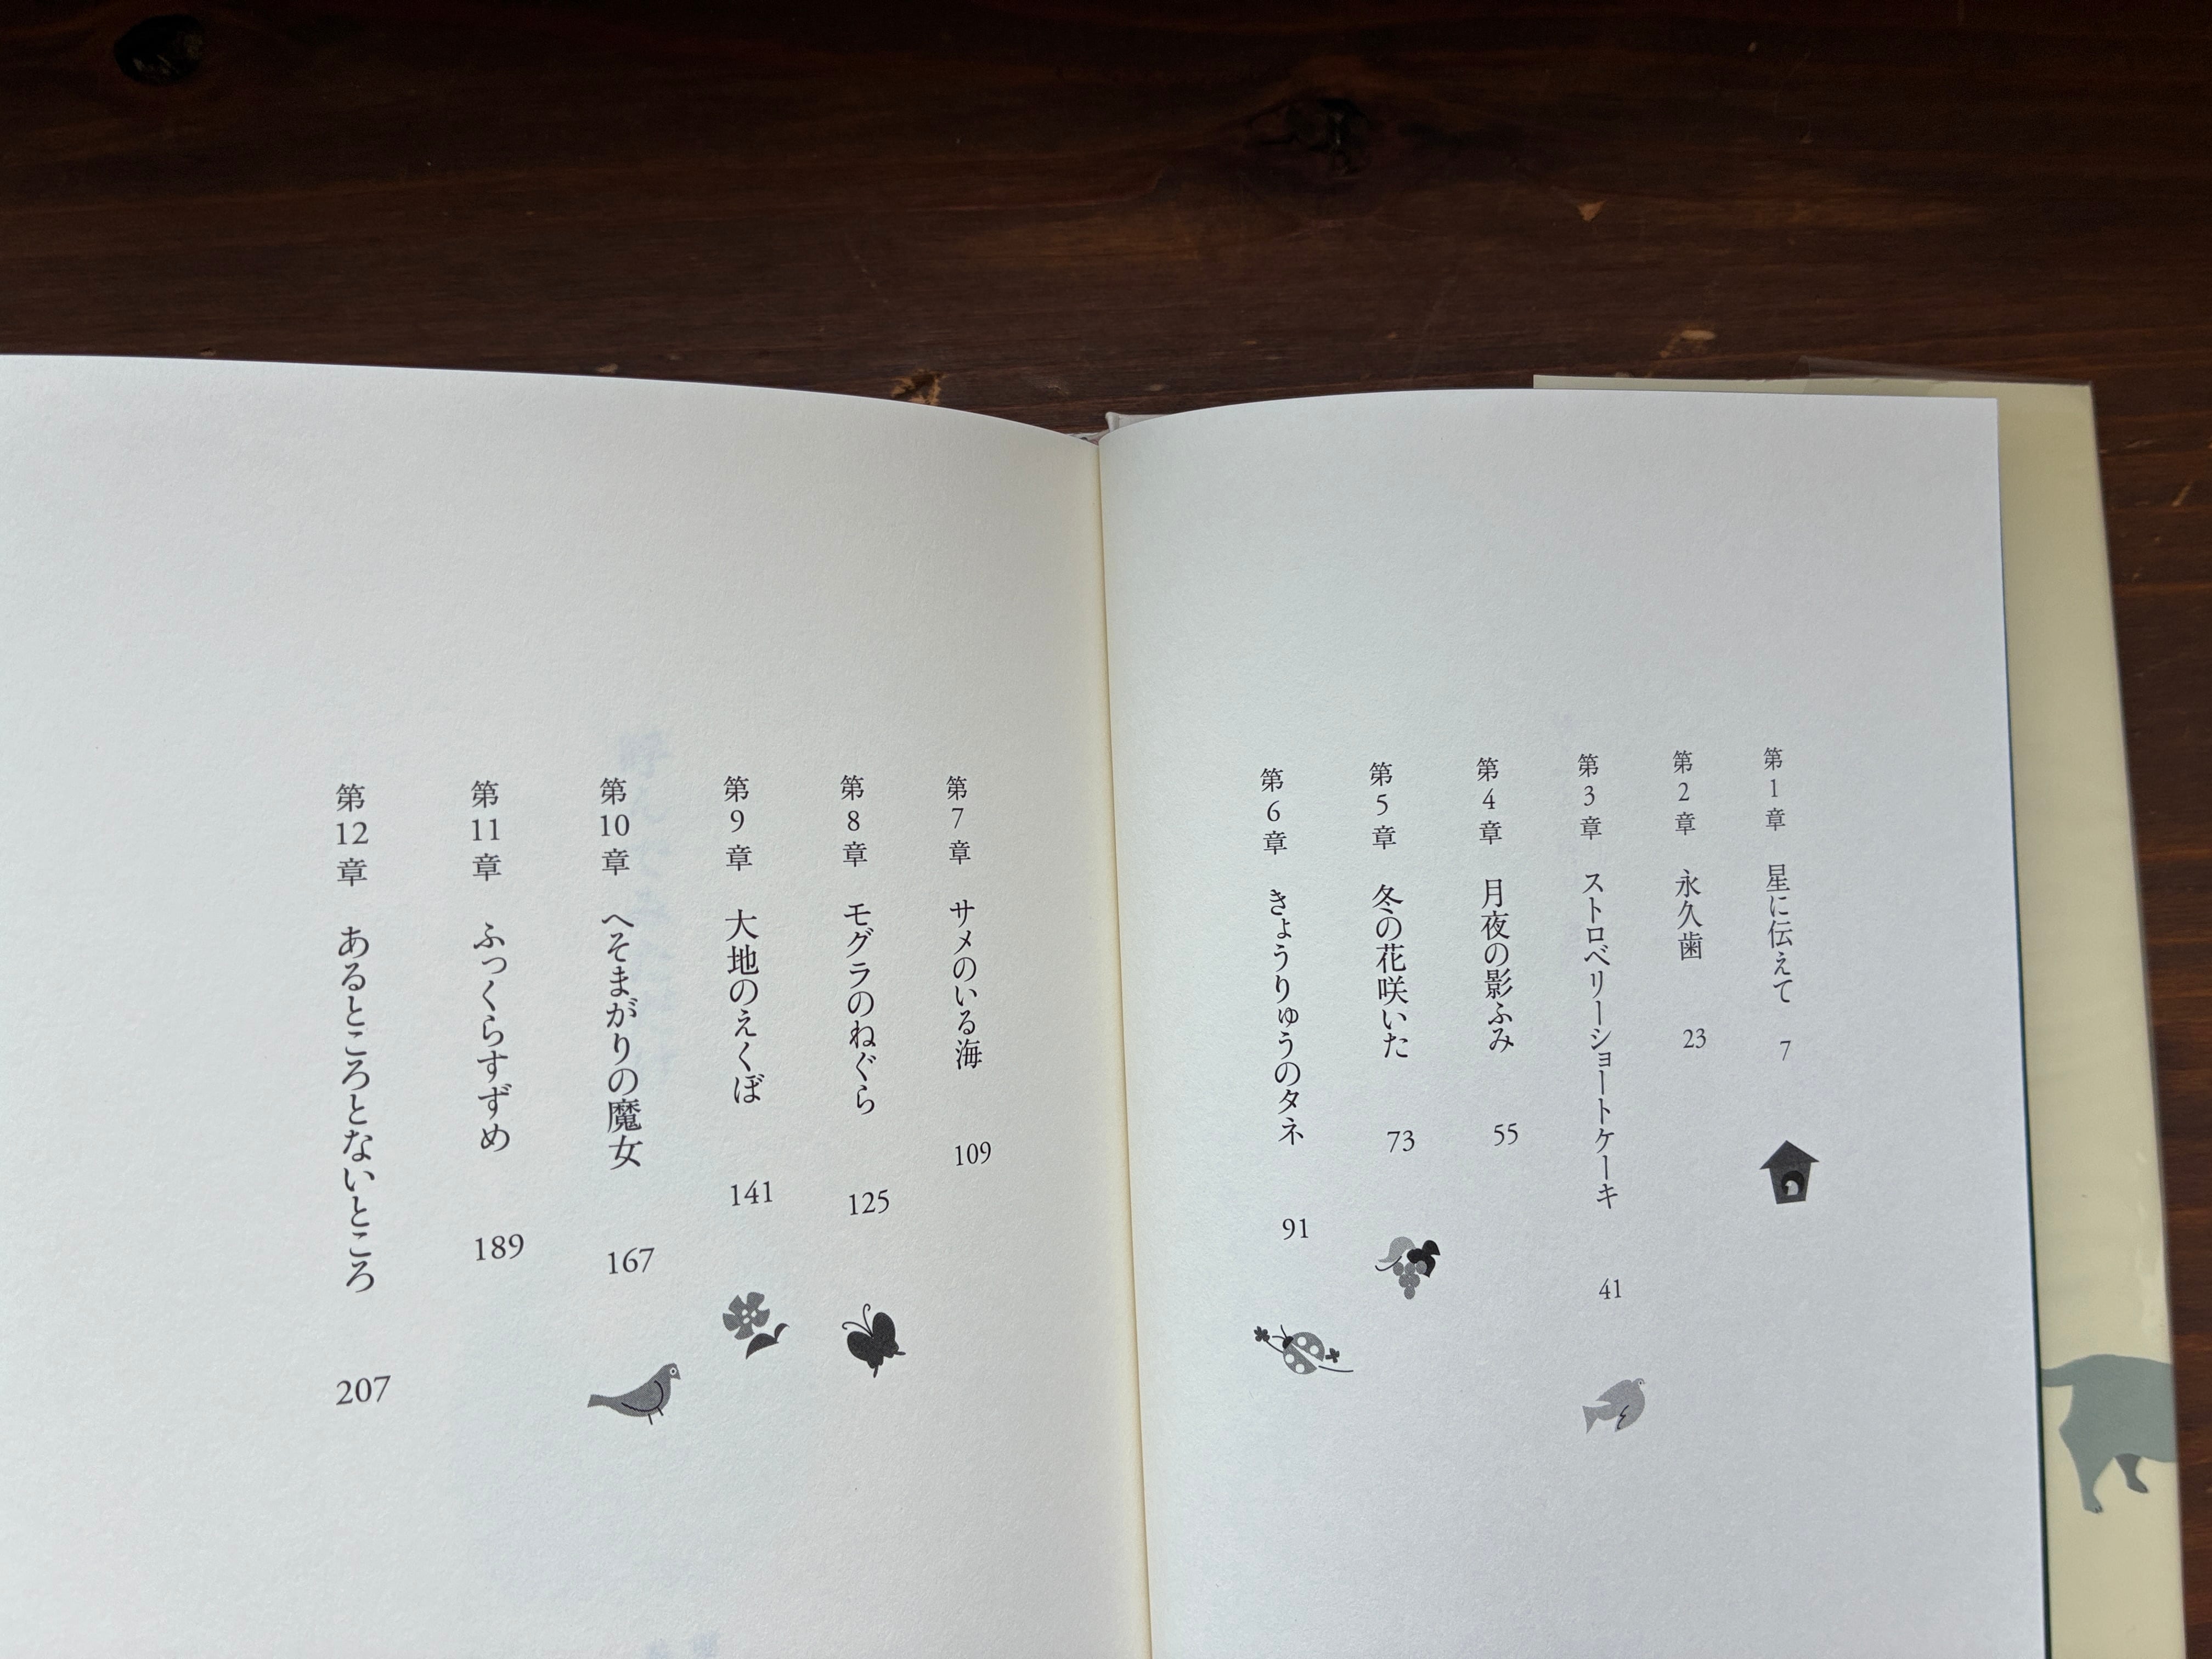 第1章 星に伝えて 7
第2章 永久歯 23
第3章 ストロベリーショートケーキ 41
第4章 月夜の影ふみ 55
第5章 冬の花咲いた 73
第6章 きょうりゅうのタネ 91
第7章 サメのいる海 109
第8章 モグラのねぐら 125
第9章 大地のえくぼ 141
第10章 へそまがりの魔女 167
第11章 ふっくらすずめ 189
第12章 あるところとないところ 207